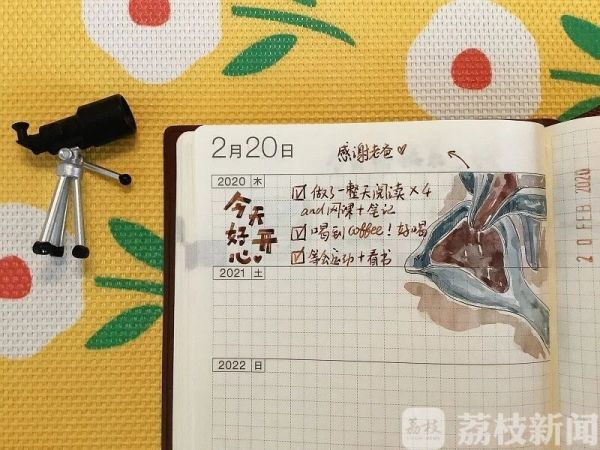 2月20日
感谢老爸♥
2020 木
今天
好开
心
☑做了一整天阅读×4
and网课+笔记
☑喝到coffee!好喝
☑等会运动+看书
2021 土
2022 日
20 FEB 2020
荔枝 荔枝新闻